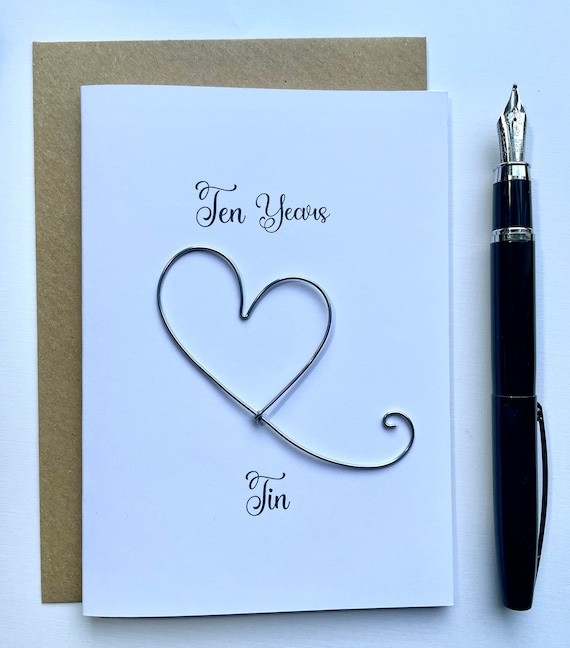 Ten Years
Tin